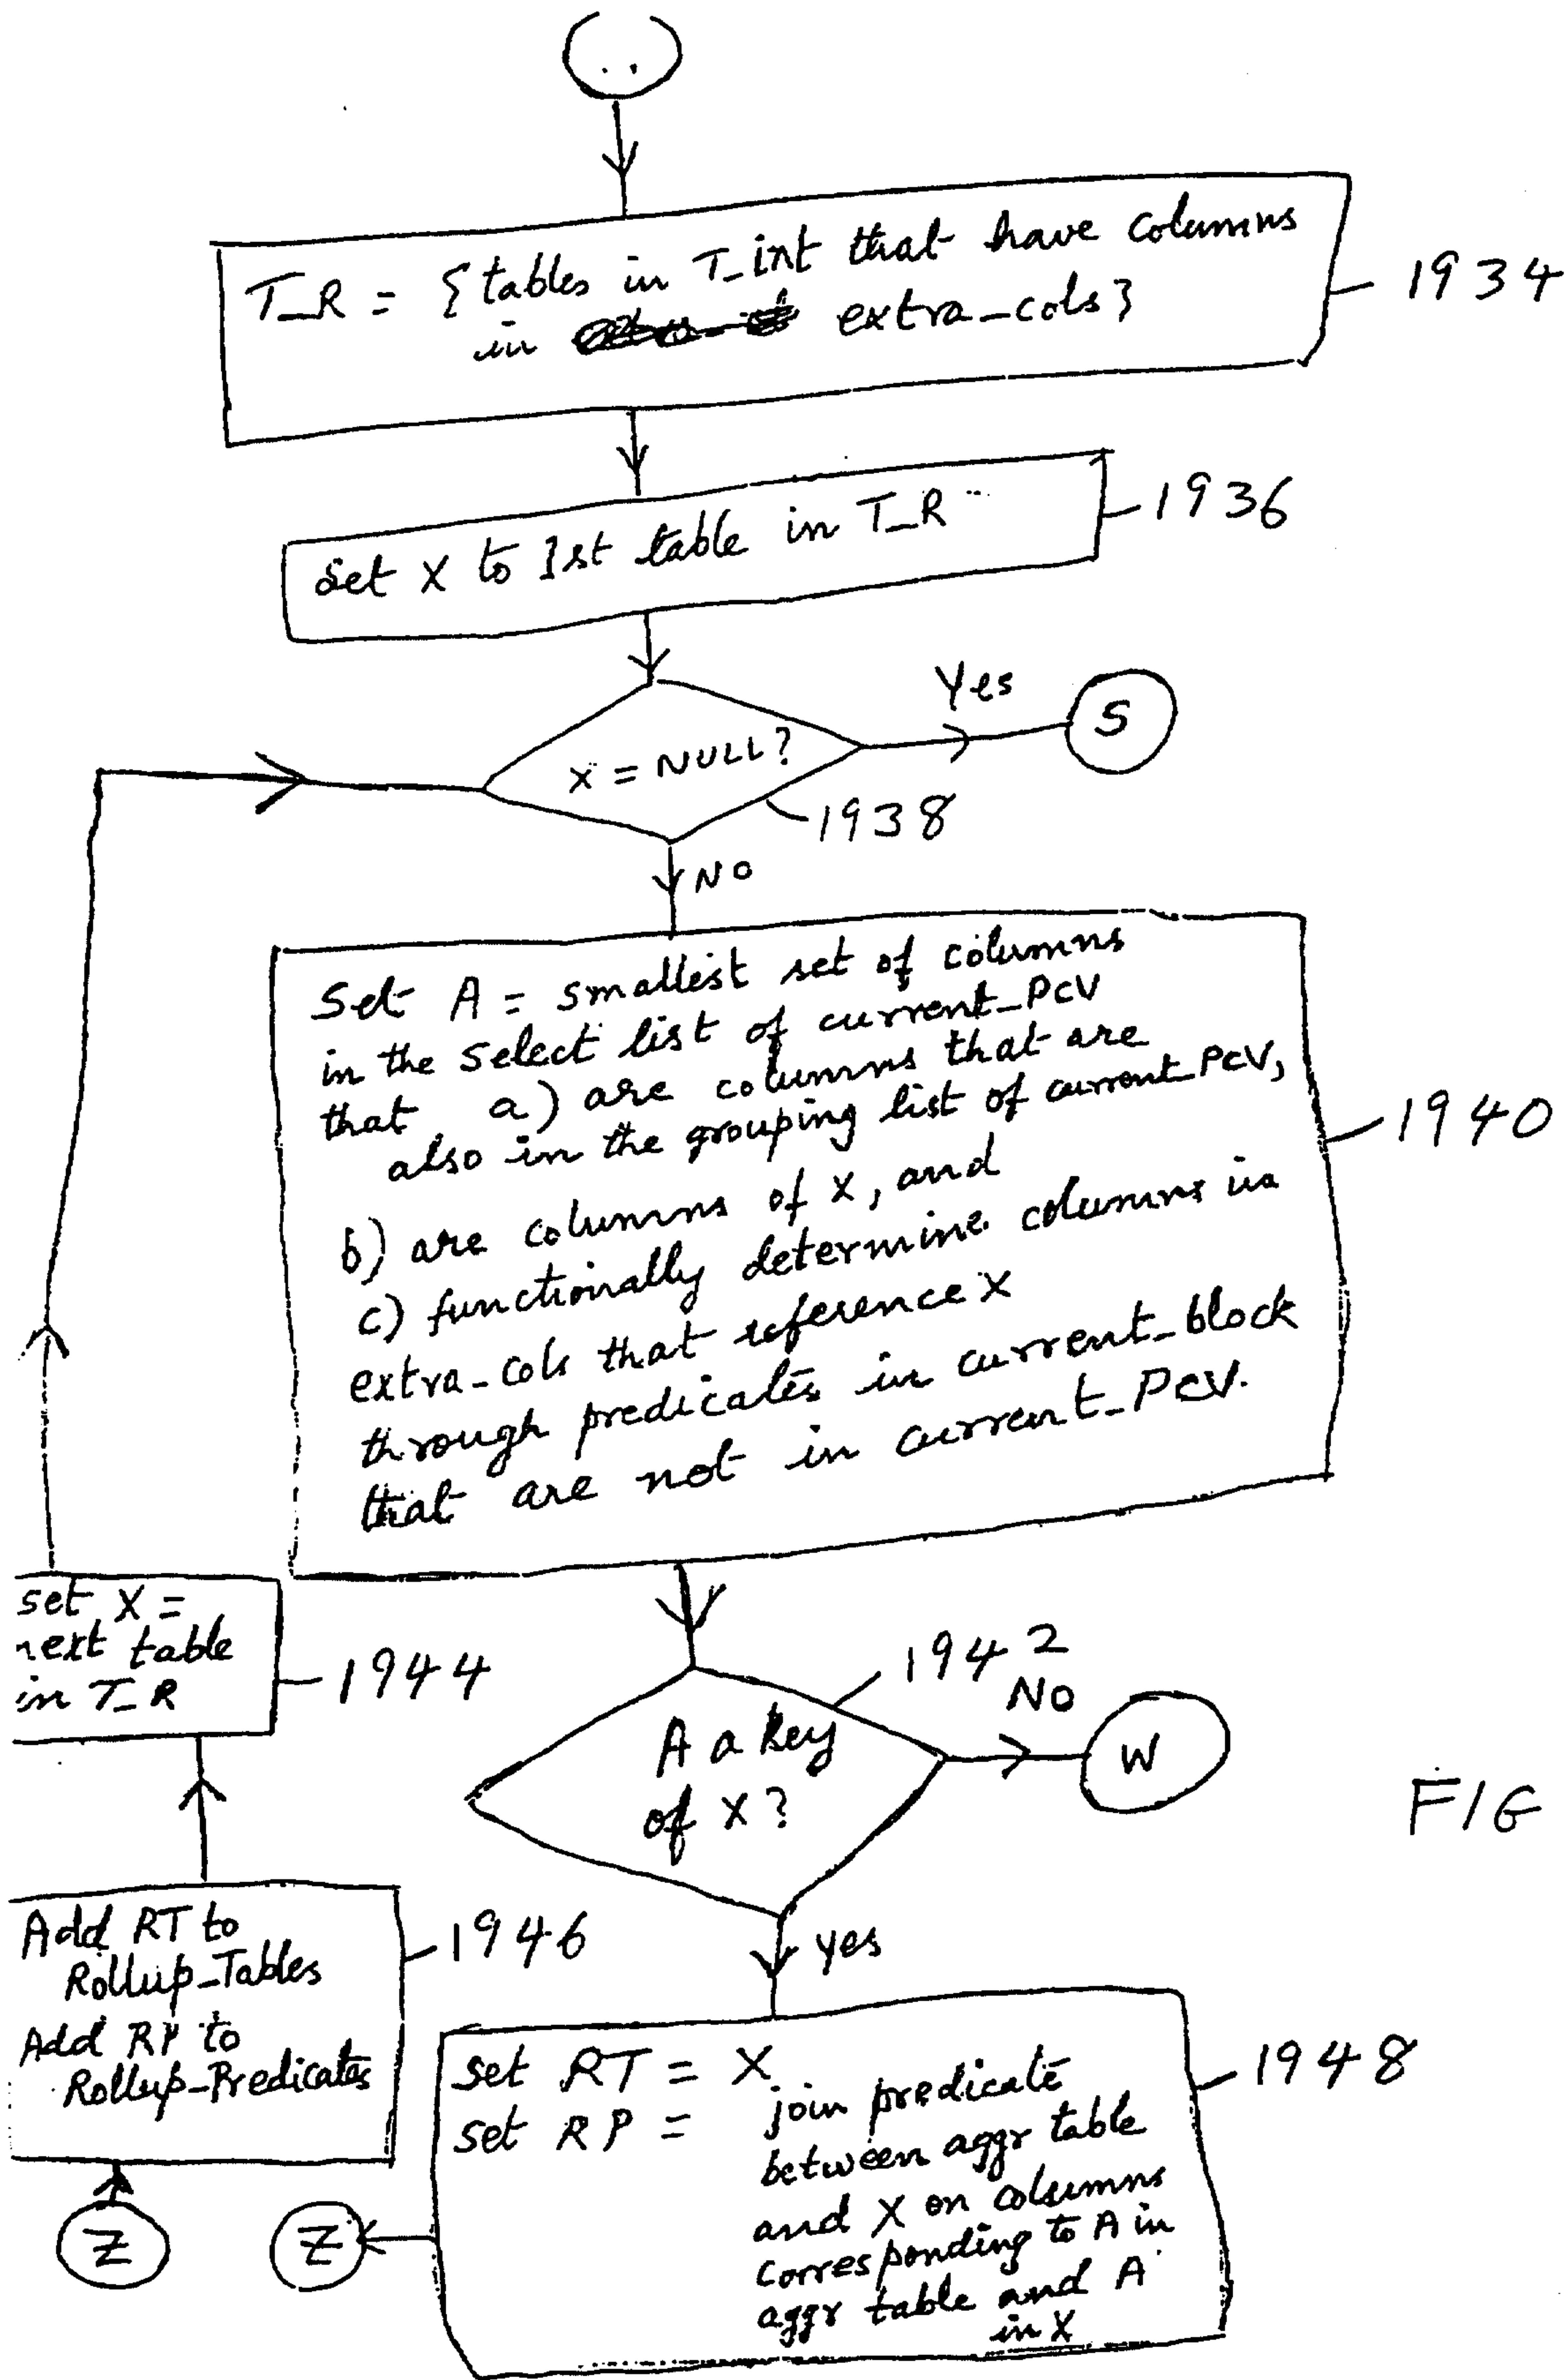 T_R = {tables in T_int that have columns
in extra_cols}
1934
Set X to 1st table in T_R
1936
X = NULL?
Yes
S
1938
NO
Set A = smallest set of columns
in the select list of current_PCV
that a) are columns that are
also in the grouping list of current_PCV,
b) are columns of X, and
c) functionally determine columns in
extra_cols that reference X
through predicates in current_block
that are not in current_PCV.
1940
set X =
next table
in T_R
1944
A a key
of X?
1942
NO
W
FIG
yes
Add RT to
Rollup_Tables
Add RP to
Rollup_Predicates
1946
Z
Z
set RT = X
set RP = join predicate
between aggr table
and X on columns
corresponding to A in
aggr table and A
in X
1948